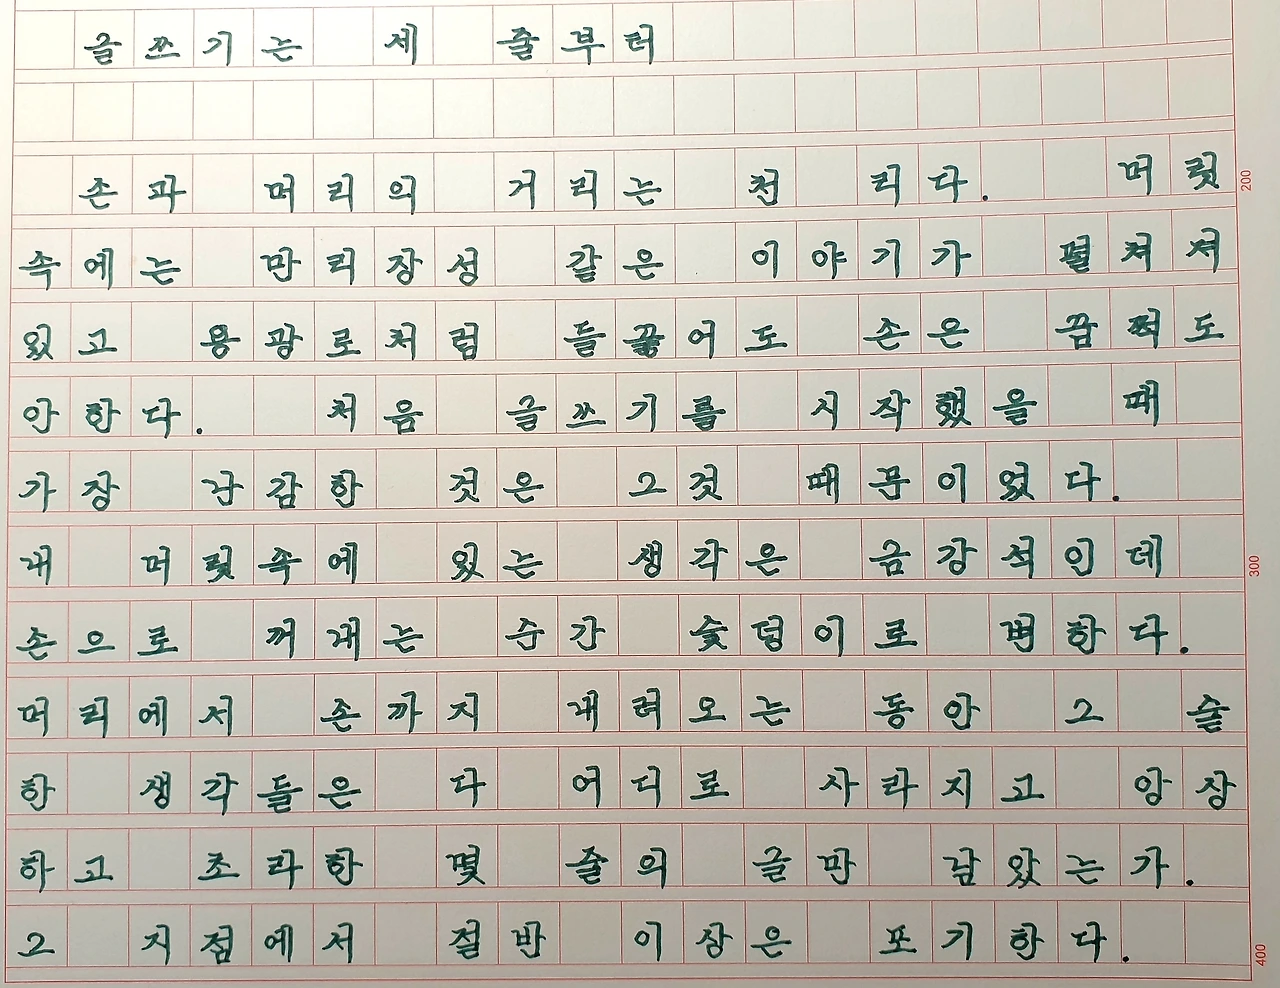 글쓰기는 세 줄부터
손과 머리의 거리는 천 리다. 머릿 200
속에는 만리장성 같은 이야기가 펼쳐져
있고 용광로처럼 들끓어도 손은 꿈쩍도
안한다. 처음 글쓰기를 시작했을 때
가장 난감한 것은 그것 때문이었다.
내 머릿속에 있는 생각은 금강석인데 300
손으로 꺼내는 순간 숯덩이로 변한다.
머리에서 손까지 내려오는 동안 그 술
한 생각들은 다 어디로 사라지고 앙상
하고 초라한 몇 줄의 글만 남았는가.
그 지점에서 절반 이상은 포기한다. 400